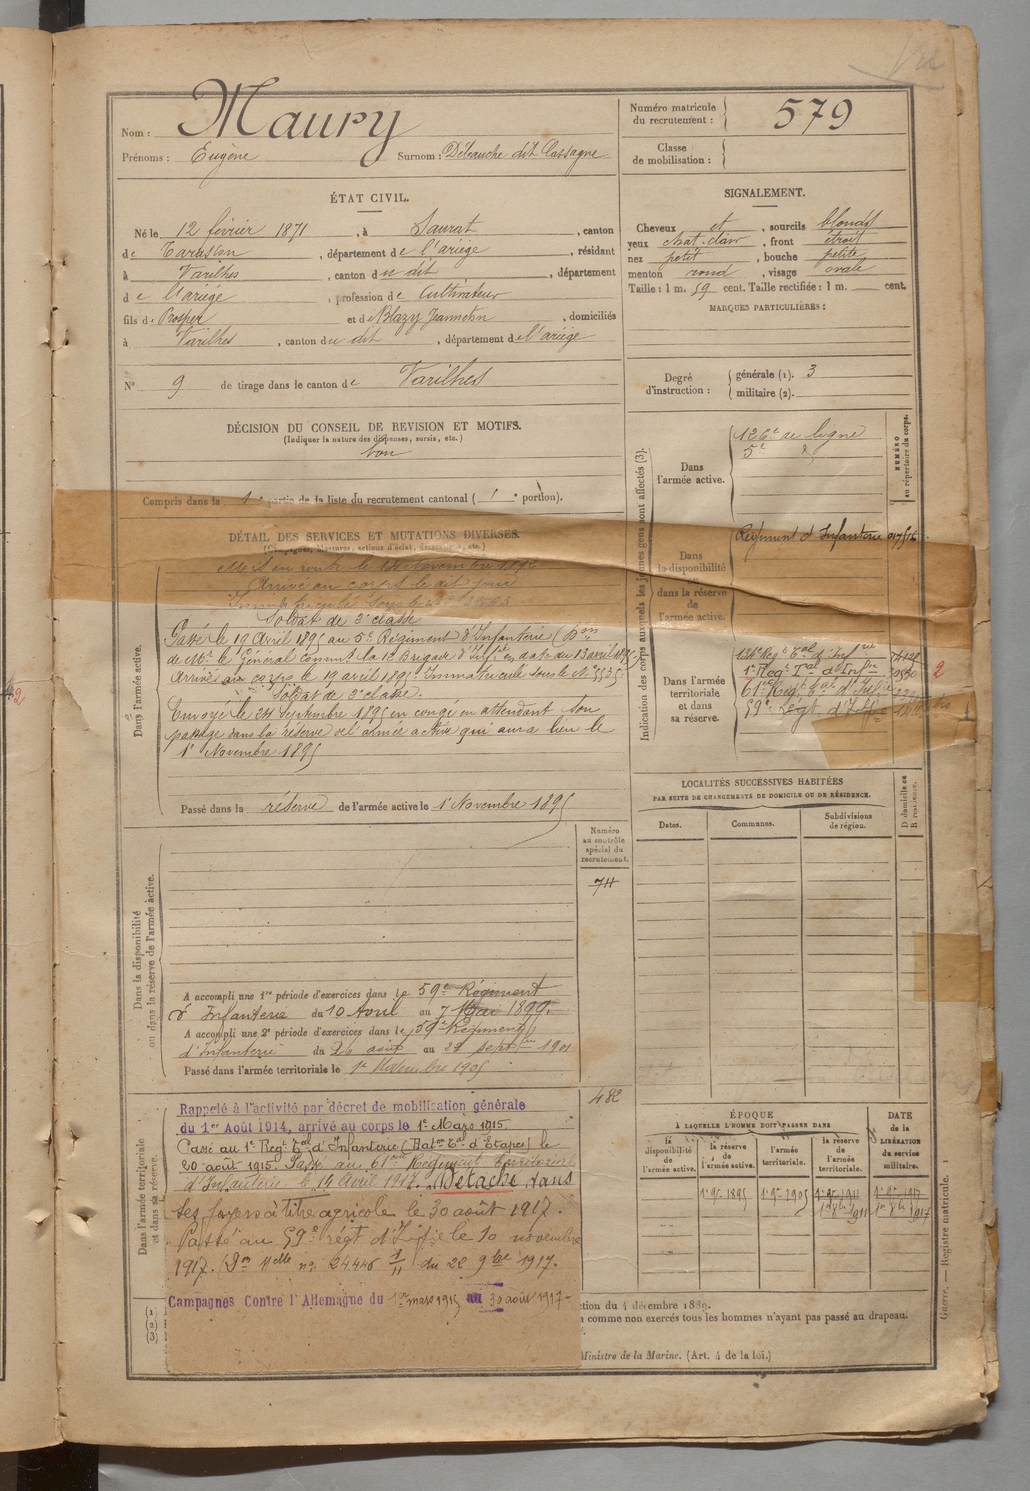 Vu
Nom : Maury
Prénoms : Eugène Surnom : Débauche dit Cassagne
Numéro matricule du recrutement : 579
Classe de mobilisation :
ÉTAT CIVIL.
Né le 12 février 1871, à Saurat, canton
de Tarascon, département de l'ariège, résidant
à Varilhes, canton du dit, département
de l'ariège, profession de Cultivateur
fils de Prosper et de Blazy Jeanneton, domiciliés
à Varilhes, canton du dit, département de l'ariège
N° 9 de tirage dans le canton de Varilhes
SIGNALEMENT.
Cheveux et, sourcils blonds
yeux chat. clair, front étroit
nez petit, bouche petite
menton rond, visage ovale
Taille : 1 m. 59 cent. Taille rectifiée : 1 m. cent.
MARQUES PARTICULIÈRES :
Degré d'instruction : générale (1). 3
militaire (2).
DÉCISION DU CONSEIL DE REVISION ET MOTIFS.
(Indiquer la nature des dispenses, sursis, etc.)
bon
Compris dans la 1re partie de la liste du recrutement cantonal ( 1e portion).
DÉTAIL DES SERVICES ET MUTATIONS DIVERSES.
(Campagnes, blessures, actions d'éclat, etc.)
Dans l'armée active.
Mis en route le Novembre 1892
Arrivé au corps le dit jour
Immatriculé sous le n° 3563
Soldat de 2e classe
Passé le 19 Avril 1895 au 5e Régiment d'Infanterie (Don
de Mr. le Général Commt la 12 Brigade d'Infie en date du 13 avril 1895
Arrivé au corps le 19 avril 1895. Immatriculé sous le N° 5535
Soldat de 2e classe.
Envoyé le 24 septembre 1895 en congé en attendant son
passage dans la réserve de l'armée active qui aura lieu le
1r Novembre 1895
Passé dans la réserve de l'armée active le 1r Novembre 1895
Indication des corps auxquels les jeunes gens sont affectés (3).
Dans l'armée active.
126e de ligne
5e
NUMÉRO au répertoire du corps.
Dans la disponibilité ou dans la réserve de l'armée active.
Régiment d'Infanterie
Dans l'armée territoriale et dans sa réserve.
1r Régt Tal d'Infie
61e Régt Tal d'Infie
59e Régt d'Infie
2
LOCALITÉS SUCCESSIVES HABITÉES
PAR SUITE DE CHANGEMENTS DE DOMICILE OU DE RÉSIDENCE.
Dates. Communes. Subdivisions de région. D domicile ou R résidence.
Numéro au contrôle spécial du recrutement.
711
Dans la disponibilité ou dans la réserve de l'armée active.
A accompli une 1re période d'exercices dans le 59e Régiment
d'Infanterie du 10 Avril au 7 Mai 1899.
A accompli une 2e période d'exercices dans le 59e Régiment
d'Infanterie du 26 août au 22 septbre 1901
Passé dans l'armée territoriale le 1r Novembre 1905
482
Dans l'armée territoriale et dans sa réserve.
Rappelé à l'activité par décret de mobilisation générale
du 1er Août 1914, arrivé au corps le 1r Mars 1915.
Passé au 1r Régt Tal d'Infanterie (Baton Tal d'Etapes) le
20 août 1915. Passé au 61e Régiment Territorial
d'Infanterie le 14 Avril 1917. Détaché dans
ses foyers à titre agricole le 30 août 1917.
Passé au 59e régt d'Infie le 10 novembre
1917. (Don Mlle n° 24446 1/11 du 22 9bre 1917.
Campagnes Contre l'Allemagne du 1er mars 1915 au 30 août 1917.
ÉPOQUE
À LAQUELLE L'HOMME DOIT PASSER DANS
la disponibilité de l'armée active. la réserve de l'armée active. l'armée territoriale. la réserve de l'armée territoriale.
DATE de la LIBÉRATION du service militaire.
1r 9bre 1895 1r 9bre 1905 1r 9bre 1911 1r 9bre 1917
1r 8bre 1911 1r 8bre 1917
(1)
(2)
(3)
ction du 4 décembre 1889.
a comme non exercés tous les hommes n'ayant pas passé au drapeau.
Ministre de la Marine. (Art. 4 de la loi.)
Guerre. — Registre matricule. 1